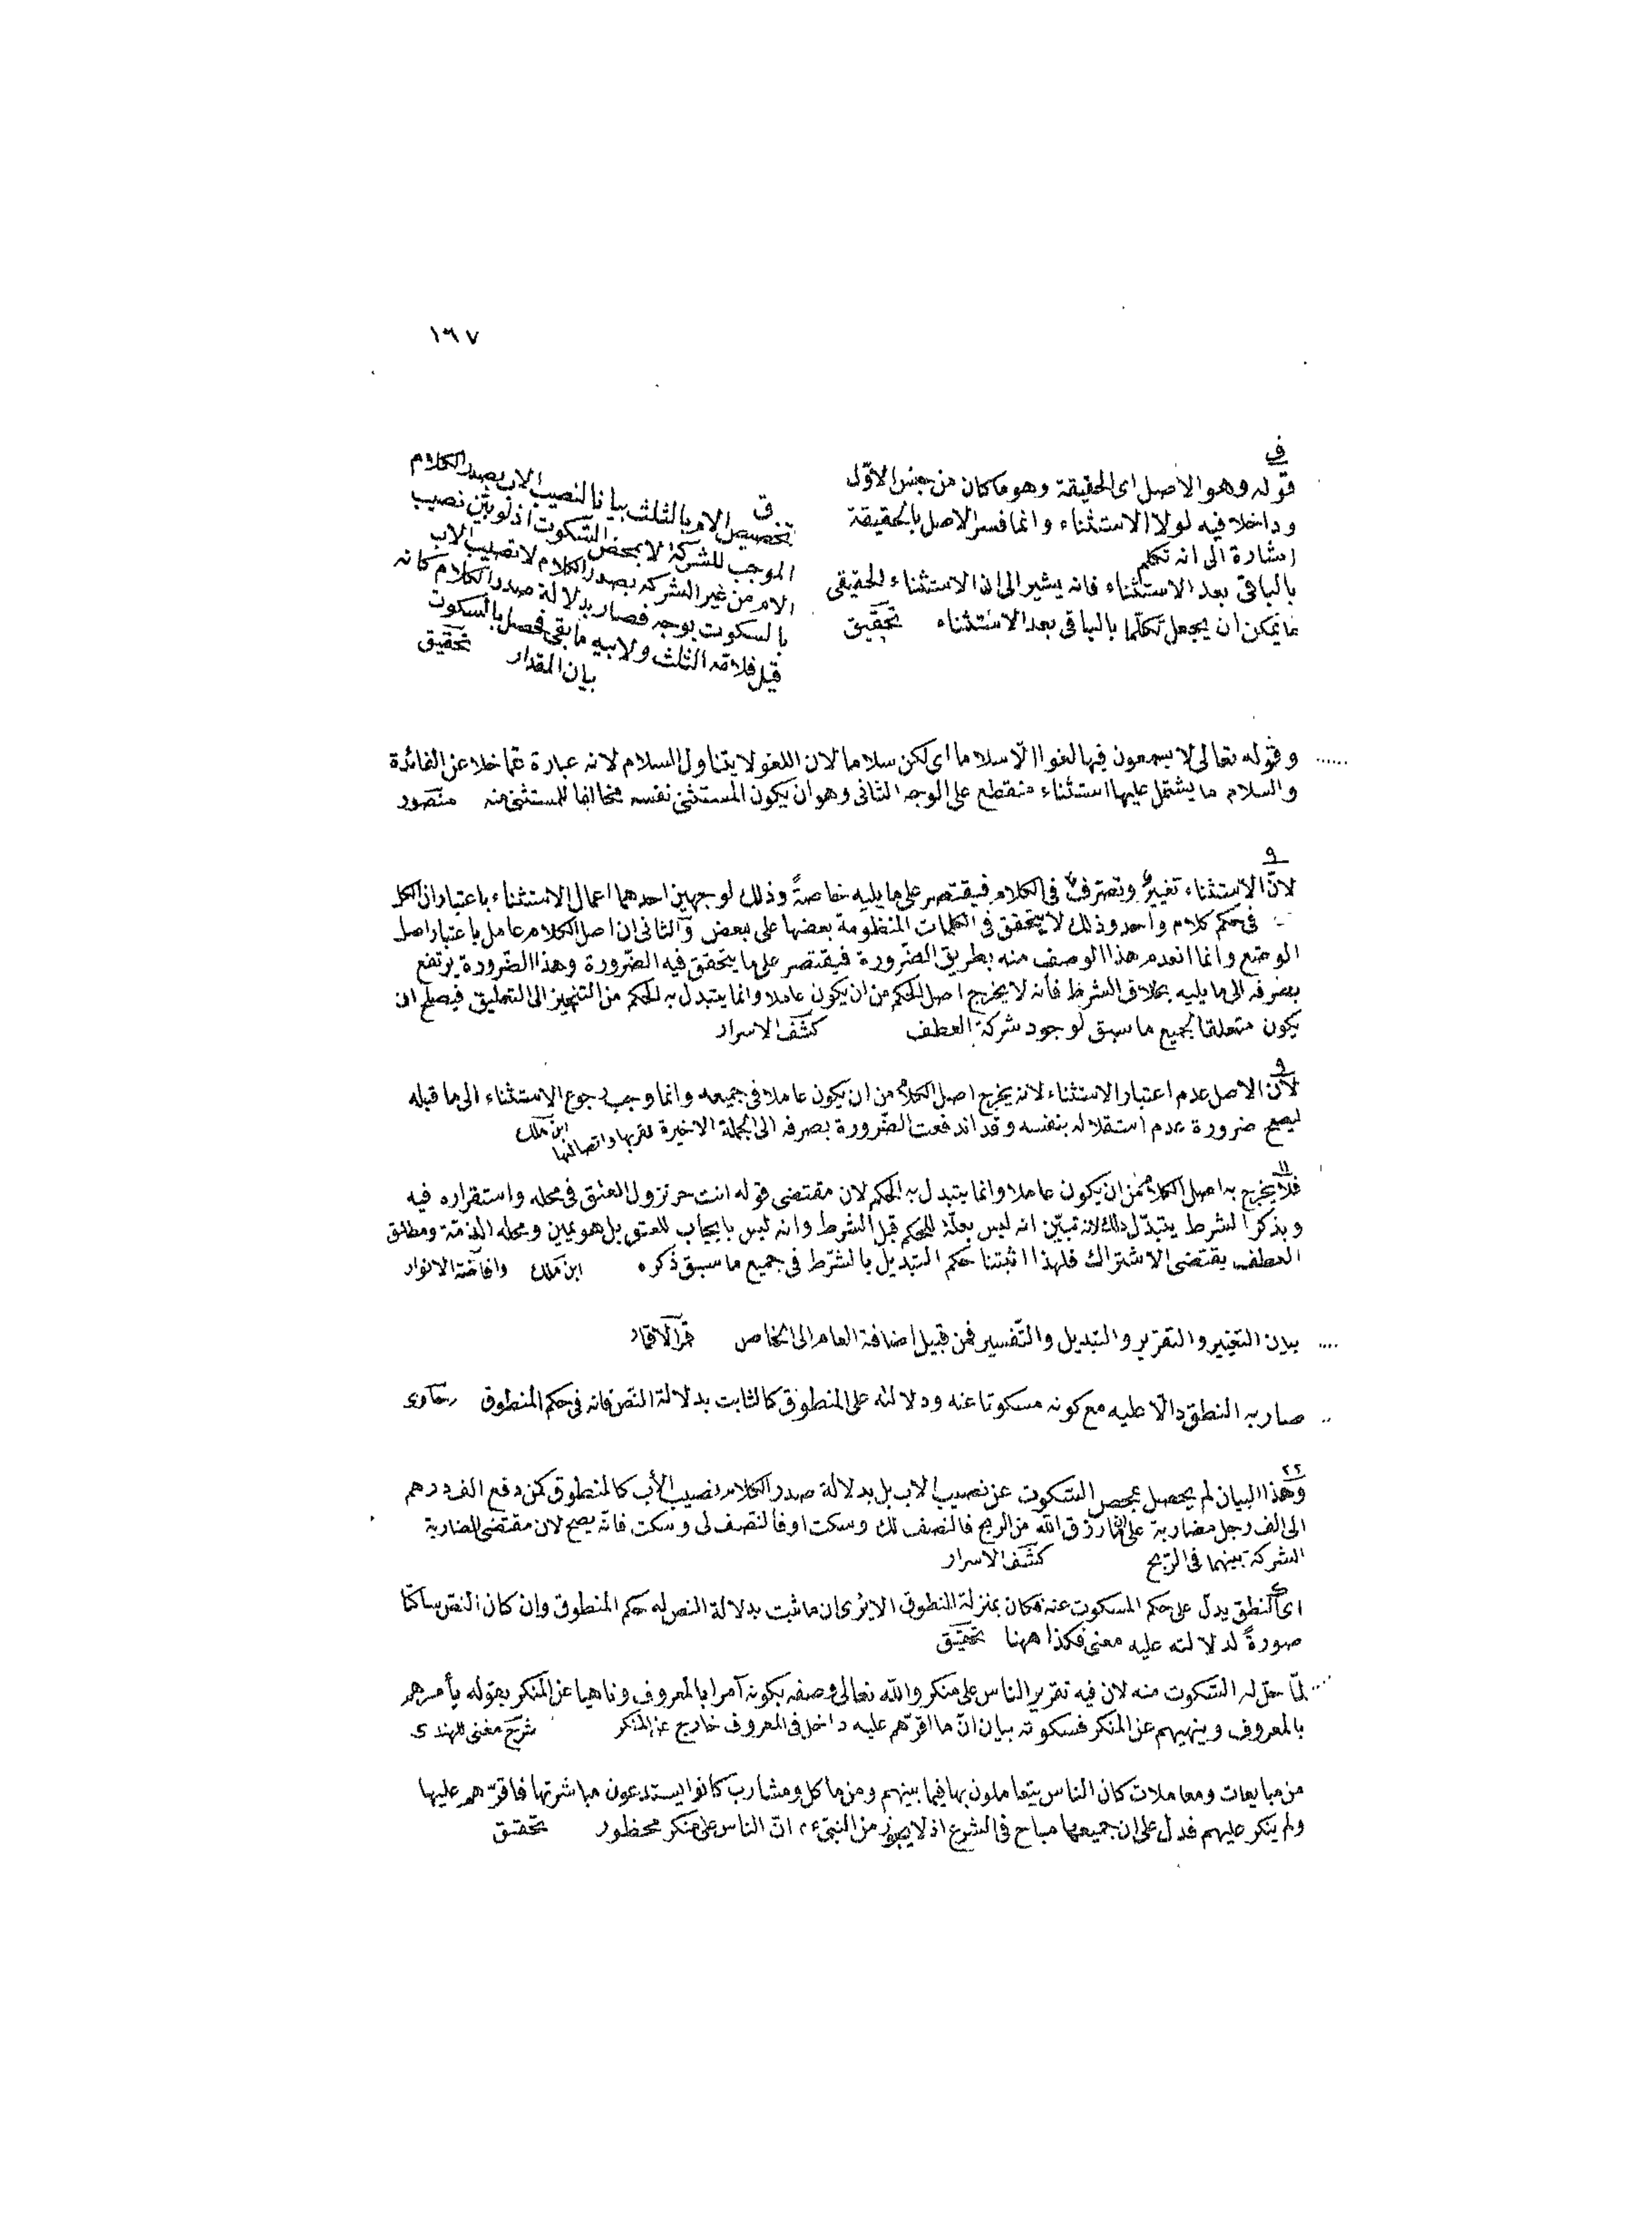 ١٦٧
ف
قوله وهو الاصل اى الحقيقة وهو ما كان من جنس الاوّل
وداخلا فيه لولا الاستثناء وانما فسر الاصل بالحقيقة
اشارة الى انه تكلم
بالباقى بعد الاستثناء فانه يشير الى ان الاستثناء الحقيقى
ما يمكن ان يجعل تكلّما بالباقى بعد الاستثناء تحقيق
ق
تخصيص الام بالثلث بيانا لنصيب الاب بصدر الكلام
الموجب للشركة لا بمحض السّكوت اذ لو بيّن نصيب
الام من غير الشركة بصدر الكلام لا نصيب الاب
بالسكوت بوجه فصار بدلالة صدر الكلام كانه
قيل فلامّه الثلث ولابيه ما بقى فحصل بالسكوت
بيان المقدار تحقيق
...... وقوله تعالى لا يسمعون فيها لغوا الّا سلاما اى لكن سلاما لان اللغو لا يتناول السلام لانه عبارة عمّا خلا عن الفائدة
والسلام ما يشتمل عليها استثناء منقطع على الوجه الثانى وهو ان يكون المستثنى نفسه مخالفا للمستثنى منه منصور
و
لانّ الاستثناء تغييرٌ وتصرفٌ فى الكلام فيقتصر على ما يليه خاصةً وذلك لوجهين احدهما اعمال الاستثناء باعتبار ان الكل
فى حكم كلام واحد وذلك لا يتحقق فى الكلمات المنظومة بعضها على بعض والثانى ان اصل الكلام عامل باعتبار اصل
الوضع وانما انعدم هذا الوصف منه بطريق الضّرورة فيقتصر على ما يتحقق فيه الضّرورة وهذا الضّرورة يرتفع
بصرفه الى ما يليه بخلاف الشرط فانه لا يخرج اصل الحكم من ان يكون عاملا وانما يتبدل به الحكم من التنجيز الى التعليق فيصلح ان
يكون متعلقا لجميع ما سبق لوجود شركة العطف كشف الاسرار
و
لان الاصل عدم اعتبار الاستثناء لانه يخرج اصل الكلام من ان يكون عاملا فى جميعه وانما وجب رجوع الاستثناء الى ما قبله
ليصح ضرورة عدم استقلاله بنفسه وقد اندفعت الضّرورة بصرفه الى الجملة الاخيرة لقربها واتصالها ابن ملك
١١
فلا يخرج به اصل الكلام من ان يكون عاملا وانما يتبدل به الحكم لان مقتضى قوله انت حر نزول العتق فى محله واستقراره فيه
وبذكر الشرط يتبدّل ذلك لانه تبيّن انه ليس بعلّة للحكم قبل الشرط وانه ليس بايجاب للعتق بل هو يمين ومحله الذمّة ومطلق
العطف يقتضى الاشتراك فلهذا اثبتنا حكم التبديل بالشّرط فى جميع ما سبق ذكره ابن ملك وافاضة الانوار
.... بيان التغيير والتقرير والتبديل والتّفسير فمن قبيل اضافة العام الى الخاص قمر الاقمار
.. صار به النطق دالّا عليه مع كونه مسكوتا عنه ودلالته على المنطوق كالثابت بدلالة النّص فانه فى حكم المنطوق رهاوى
٢٢
وهذا البيان لم يحصل بمحض السّكوت عن نصيب الاب بل بدلالة صدر الكلام نصيب الأب كالمنطوق كمن دفع الف درهم
الى الف رجل مضاربة على انّ ما رزق الله من الربح فالنصف لك وسكت او فالنصف لى وسكت فانّه يصح لان مقتضى المضاربة
الشركة بينهما فى الرّبح كشف الاسرار
اى النطق يدلّ على حكم المسكوت عنه فكان بمنزلة المنطوق الا يرى ان ما ثبت بدلالة النص له حكم المنطوق وان كان النّص ساكتا
صورةً لدلالته عليه معنى فكذا ههنا تحقيق
.... لمّا حل له السّكوت منه لان فيه تقرير الناس على منكر والله تعالى وصفه بكونه آمرا بالمعروف وناهيا عن المنكر بقوله يأمرهم
بالمعروف وينهيهم عن المنكر فسكوته بيان انّ ما اقرّهم عليه داخل فى المعروف خارج عن المنكر شرح مغنى للهندى
من مبايعات ومعاملات كان الناس يتعاملون بها فيما بينهم ومن مآكل ومشارب كانوا يستدعون مباشرتها فاقرّهم عليها
ولم ينكر عليهم فدل على ان جميعها مباح فى الشرع اذ لا يجوز من النبىّ ء م انّ الناس على منكر محظور تحقيق